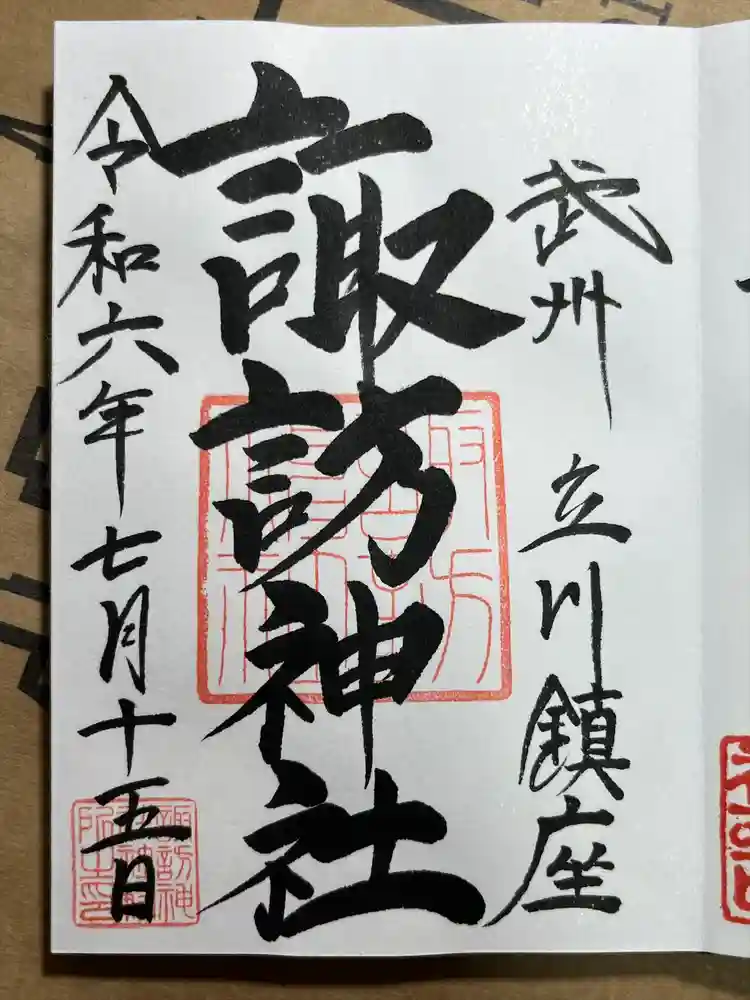 武州 立川鎮座
諏訪神社
令和六年七月十五日
諏訪神